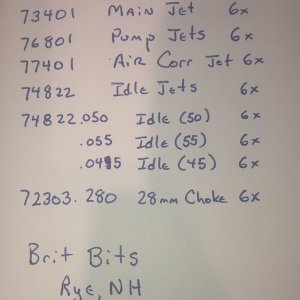 73401 Main Jet 6x
76801 Pump Jets 6x
77401 Air Corr Jet 6x
74822 Idle Jets 6x
74822.050 Idle (50) 6x
.055 Idle (55) 6x
.045 Idle (45) 6x
72303.280 28mm Choke 6x
Brit Bits
Rye, NH